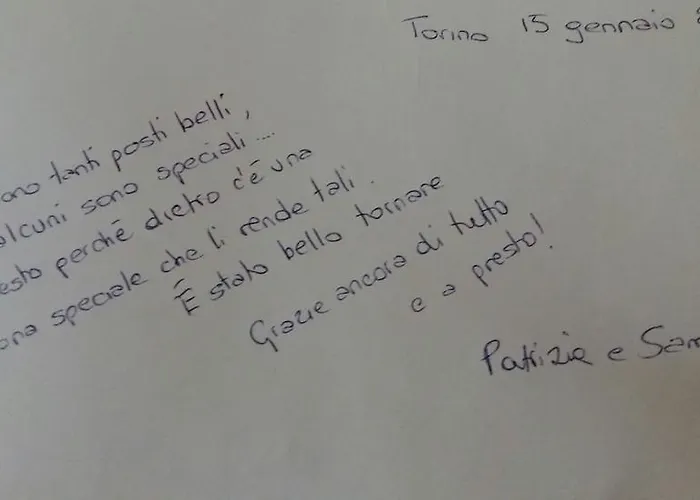 Torino 15 gennaio
ono tanti posti belli,
alcuni sono speciali....
esto perché dietro c'é una
ona speciale che li rende tali.
É stato bello tornare
Grazie ancora di tutto
e a presto!
Patrizia e Sam